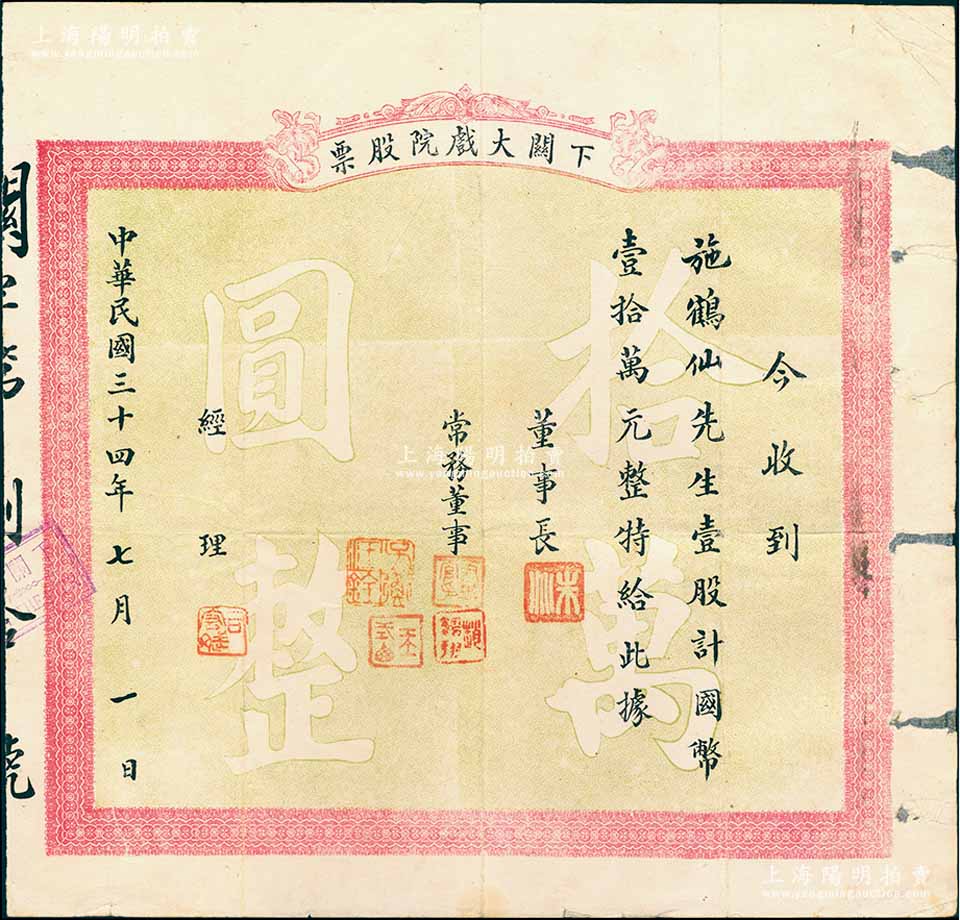 上海陽明拍賣
www.yangmingauction.com
下關大戲院股票
今收到
施鶴仙先生壹股計國幣
壹拾萬元整特給此據
拾萬
圓整
董事長
常務董事
經理
中華民國三十四年七月一日
上海陽明拍賣
www.yangmingauction.com
上海陽明拍賣
www.yangmingauction.com